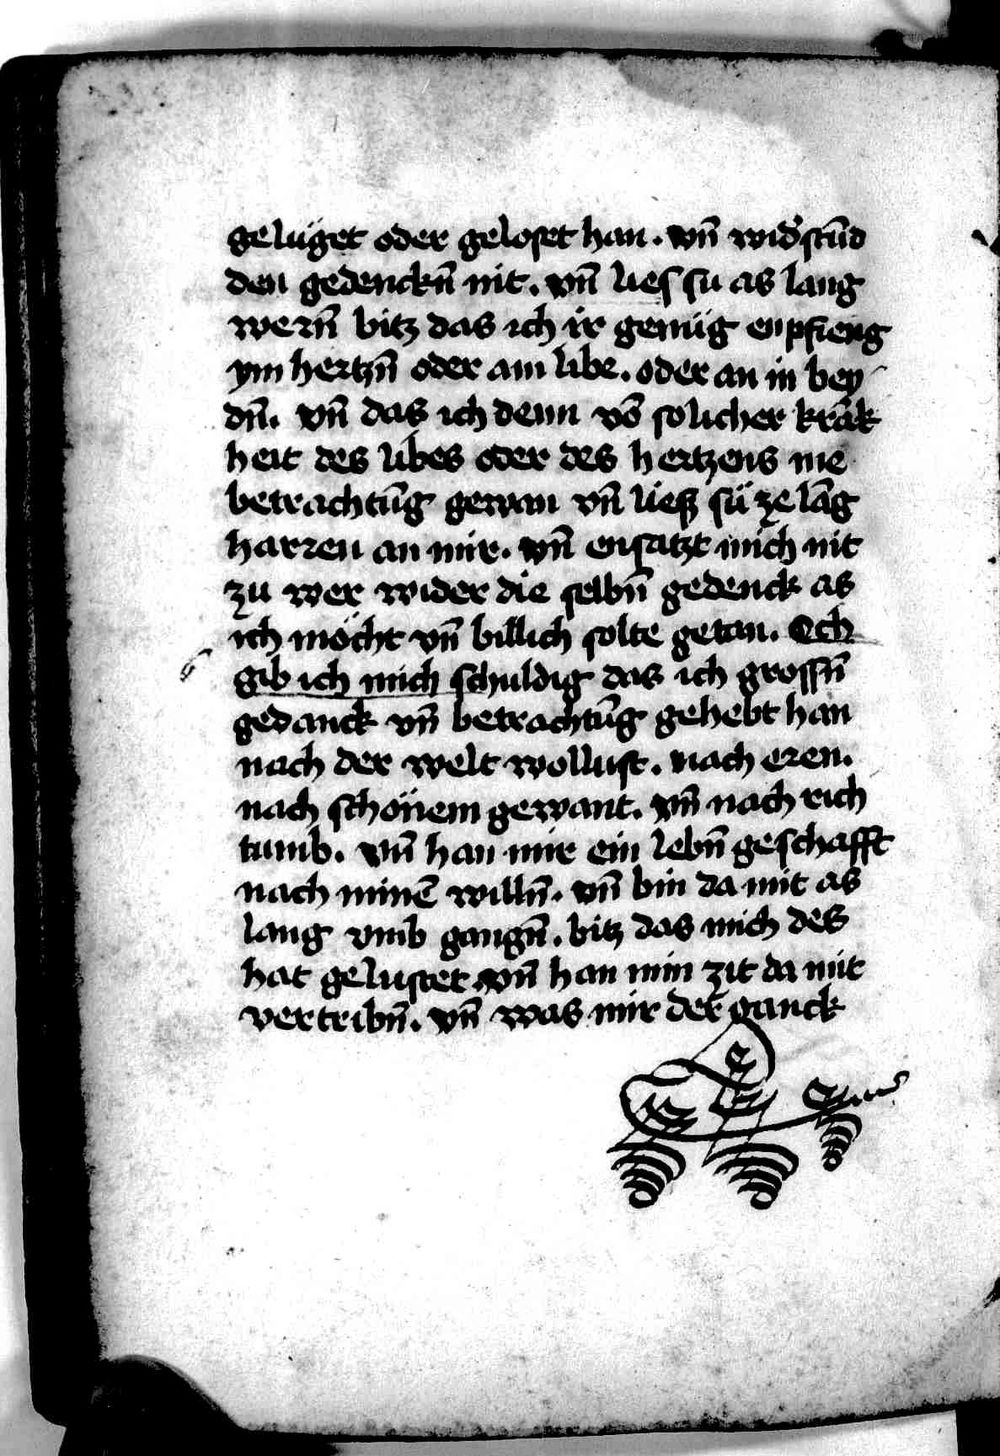 gelüget oder geloset han. vn̄ wid'stūd
den gedenckn̄ nit. vn̄ lies su as lang
wern̄ bitz das ich ir genüg enpfieng
ym hertzn̄ oder am libe. oder an in bey
dn̄. vn̄ das ich denn vō solicher krāk
heit des libes oder des hertzens me
betrachtūg gewan vn̄ liesz sü ze lāg
harren an mir. vn̄ ensatzt mich nit
zu wer wider die selbn̄ gedenck as
ich möcht vn̄ billich solte getan. Och
gib ich mich schuldig das ich grossn̄
gedanck vn̄ betrachtūg gehebt han
nach der welt wollust. nach eren.
nach schönem gewant. vn̄ nach rich
tumb. vn̄ han mir ein lebn̄ geschafft
nach minē willn̄. vn̄ bin da mit as
lang vmb gangn̄. bitz das mich des
hat gelustet. vn̄ han min zit da mit
vertribn̄. vn̄ was mir der ganck